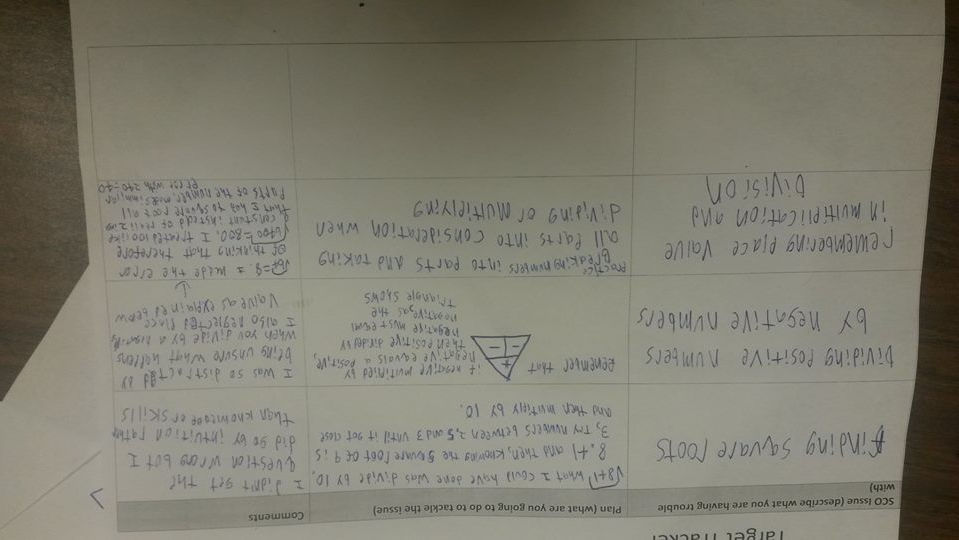 Target Tracker
SCO Issue (describe what you are having trouble
with)
Plan (what are you going to do to tackle the issue)
Comments
Finding square roots
√8+1 what I could have done was divide by 10,
8.+1 and then, knowing the square root of 9 is
3, try numbers between 2.5 and 3 until it got close
and then multiply by 10.
I didnt get this
question wrong but I
did so by intuition rather
than knowledge or skills
Dividing positive numbers
by negative numbers
Remember that
+
− −
if negative multiplied by
negative equals a positive,
then positive divided by
negative must equal
negative, as the
triangle shows
I was so distracted by
being unsure what happens
when you divide by a
I also neglected place
value as explained below
remembering place value
in multiplication and
Division
Practice
breaking numbers into parts and taking
all parts into consideration when
dividing or multiplying
=8. I made the error
of thinking that therefore
√6400=800, I treated 100 like
a constant instead of realizing
that I had to square root all
parts of the number, made similar
error with 240